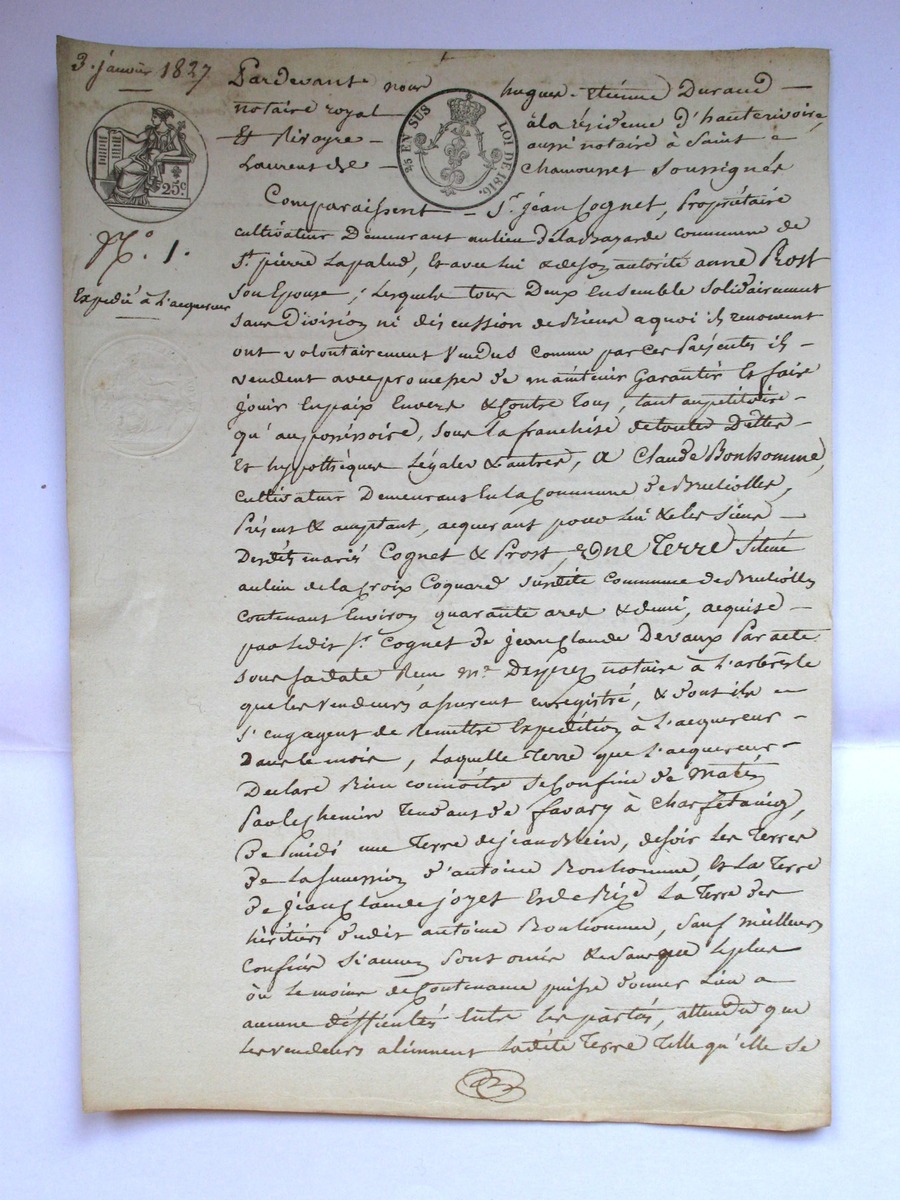 3. janvier 1827
25 EN SUS
LOI DE 1816.
25c
No. 1.
Expedié à l'acquereur
Pardevant nous hugues-étienne Durand —
notaire royal à la residence d'hauterivoire,
Et Rivoyre — aussi notaire à Saint =
Laurent de — Chamousset soussignés
Comparaissent — Sr. jean Cognet, Propriétaire
cultivateur Demeurant au lieu de commune de
St. pierre Lapalud, Et avec lui & de son autorité anne Prost
son Epouse, Lesquels tous Deux Ensemble solidairement
sans Division ni discussion de Biens a quoi ils renoncent
ont volontairement Vendus comme par ces Présentes ils —
vendent avec promesse de maintenir Garantir Et faire
jouir En paix Envers & Contre Tous, tant au pétitoire —
qu'au possessoire, sous la franchise de toutes Dettes —
Et hypothèques Légales & autres, a Claude Bonhomme,
cultivateur Demeurant En la Commune de Brullioles,
Présent & acceptant, acquerant pour Lui & les siens —
Desdits mariés Cognet & Prost, Une Terre Située
au lieu de la Croix Coquard susdite Commune de Brullioles
contenant Environ quarante ares & demi, acquise —
par Ledit Sr. Cognet de jean Claude Devaux Par acte
sous sa date Reçu me. notaire à l'arbresle
que les vendeurs assurent enregistré, & dont ils =
s'engagent de Remettre Expédition à l'acquereur —
Dans le mois, Laquelle Terre que l'acquereur —
Declare Bien connoitre se Confine de Matin
Par le Chemin Tendant de favary à
De midi une Terre de jean de soir Les Terres
de La Succession d'antoine Bonhomme, Et La Terre
de jean Claude joyet Et de Bize La Terre des
héritiers dudit antoine Bonhomme, sauf meilleurs
Confins Si aucuns Sont omis & sans que le plus
ou le moins de Contenance puisse donner Lieu a
aucune difficultés Entre les parties, attendu que
les vendeurs alienent ladite Terre Telle qu'elle se